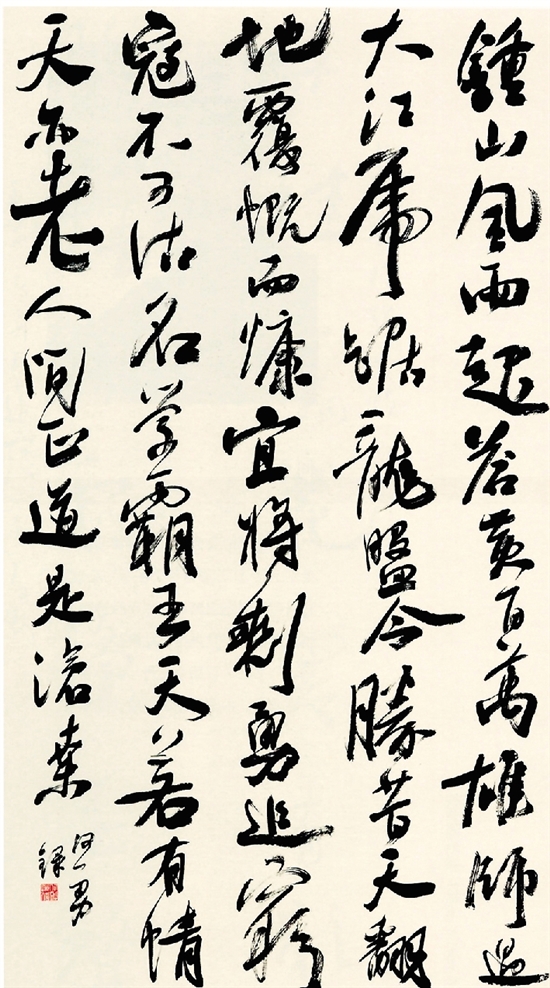 鍾山風雨起蒼黃百萬雄師過
大江虎踞龍盤今勝昔天翻
地覆慨而慷宜將剩勇追窮
寇不可沽名學霸王天若有情
天亦老人間正道是滄桑
男
錄